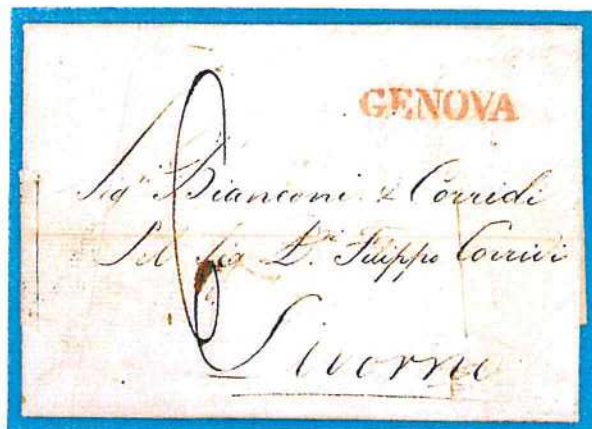 GENOVA
Sig.ri Bianconi & Corridi
Pel Sig D.r Filippo Corridi
Livorno
6